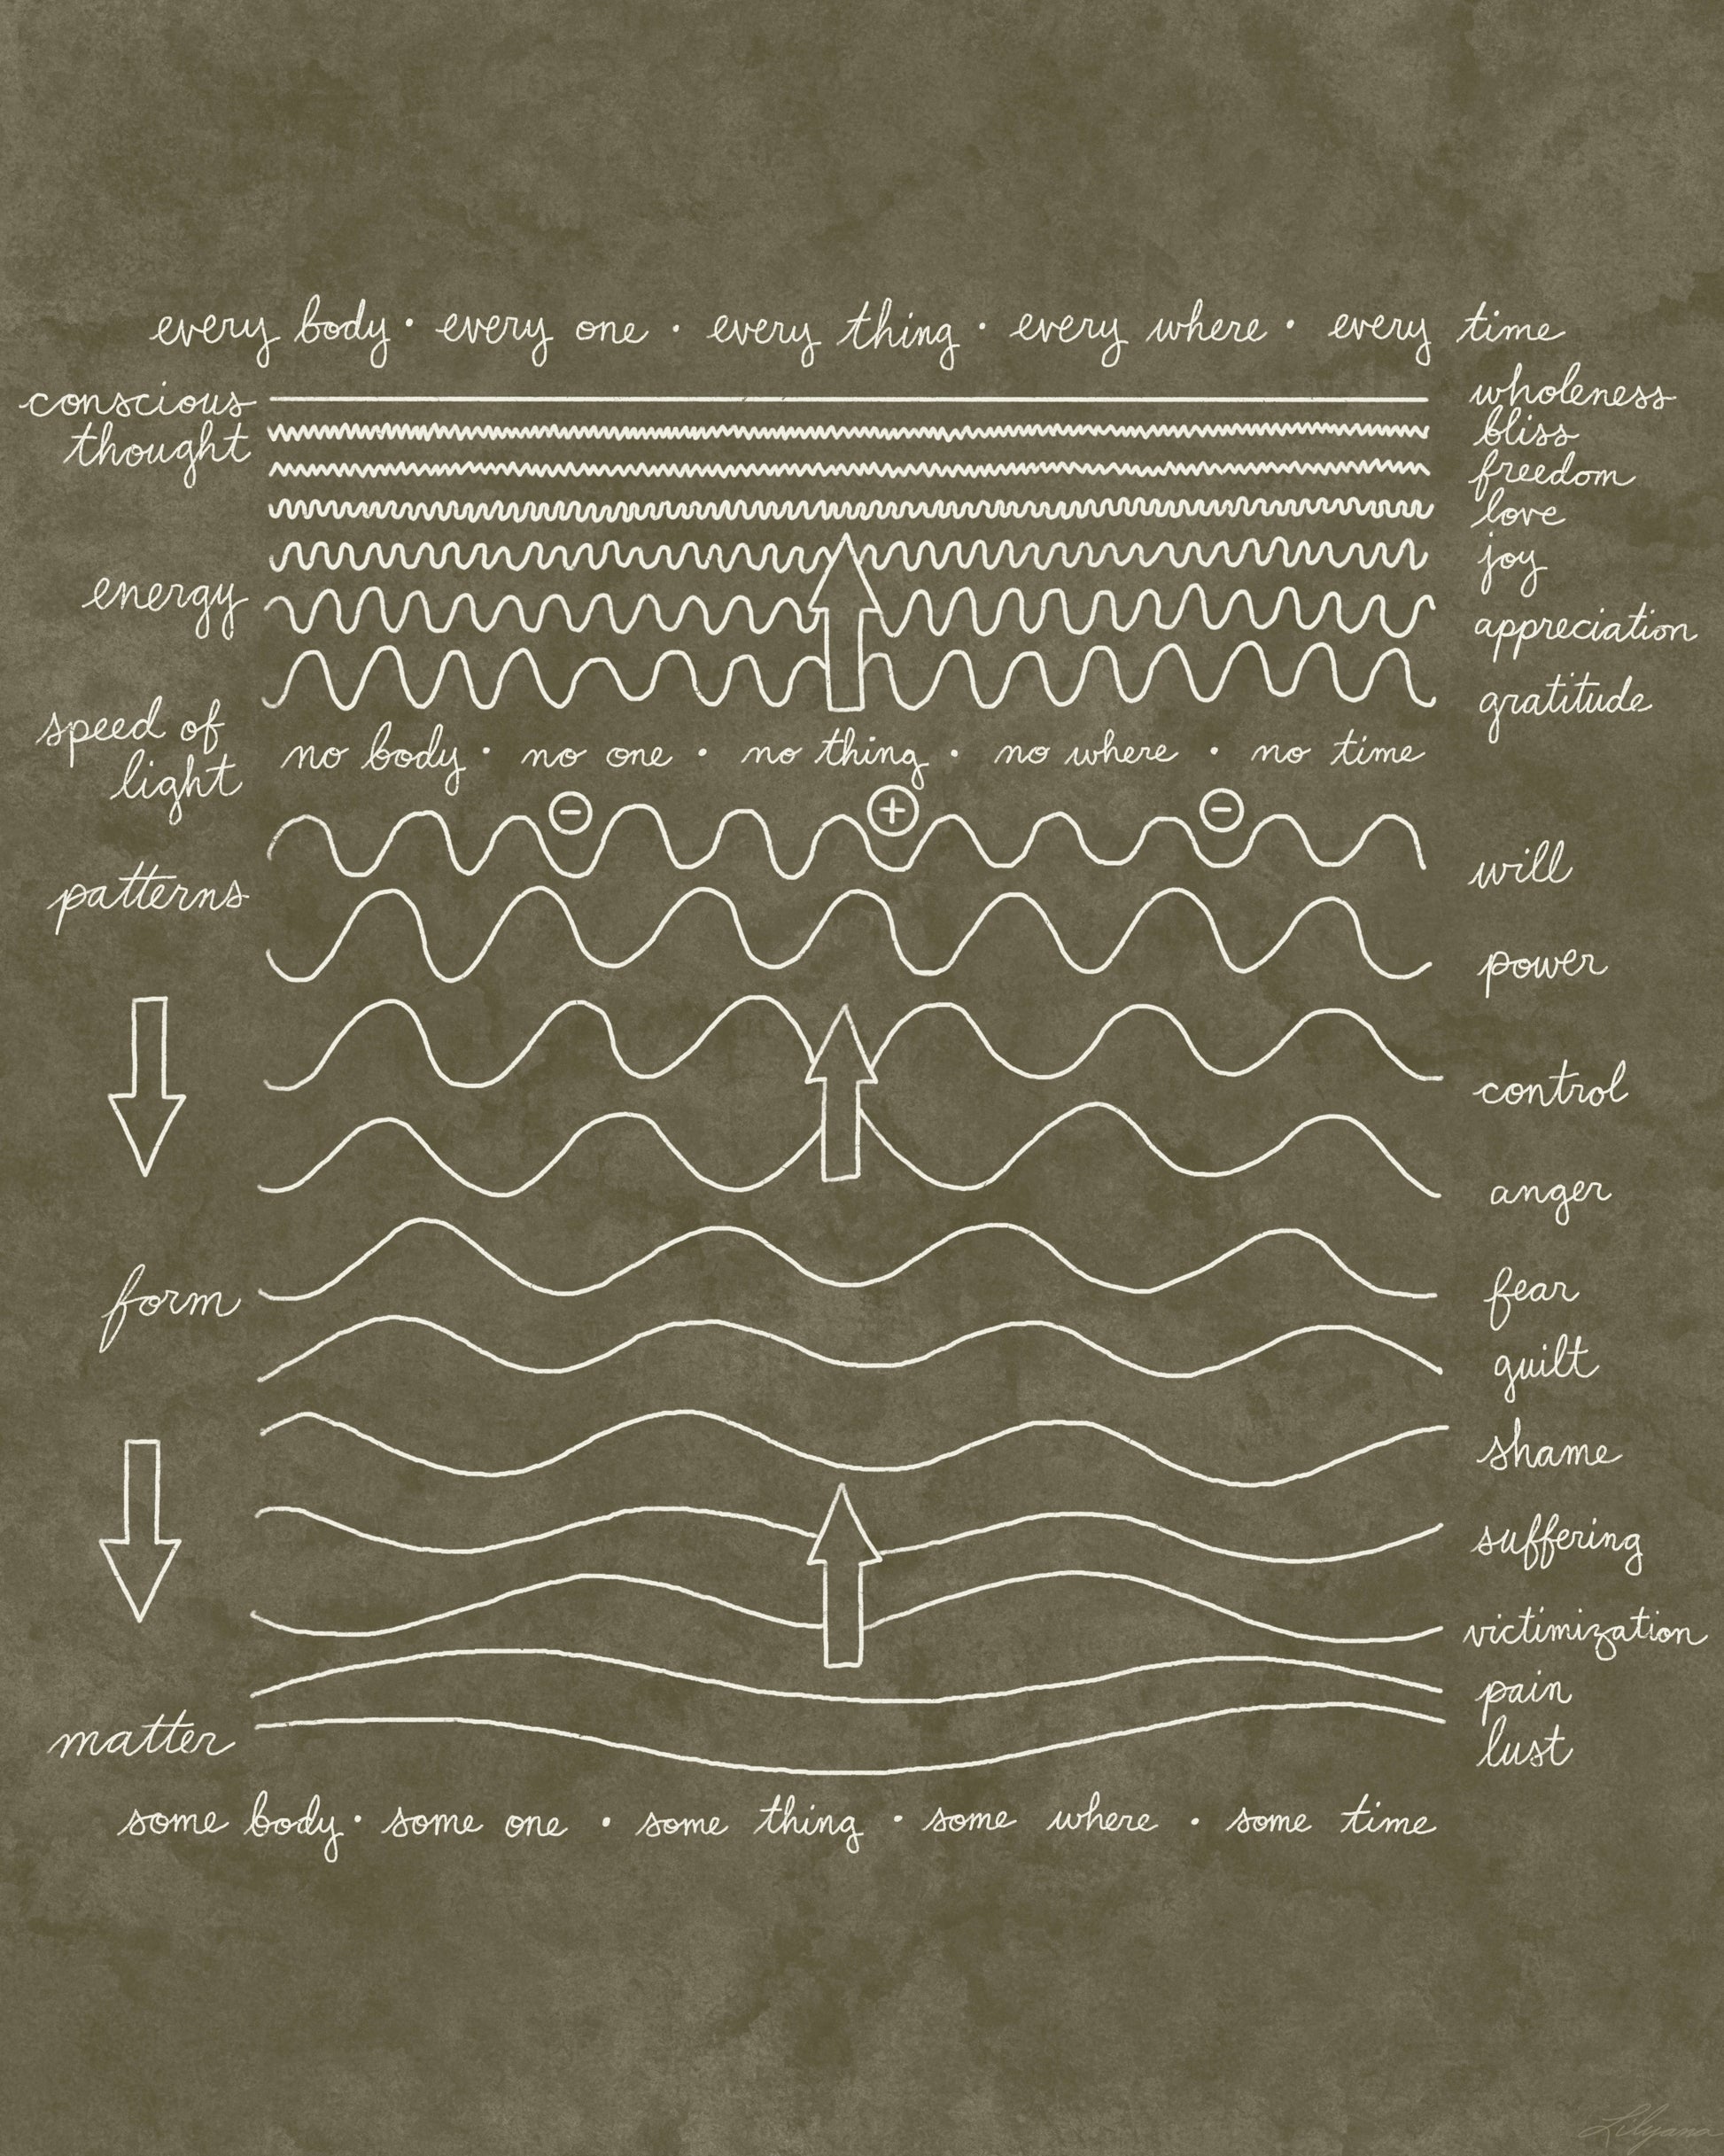 every body · every one · every thing · every where · every time
conscious
thought
wholeness
bliss
freedom
love
joy
energy
appreciation
gratitude
speed of
light
no body · no one · no thing · no where · no time
− + −
will
patterns
power
control
anger
fear
form
guilt
shame
suffering
victimization
pain
matter
lust
some body · some one · some thing · some where · some time
Lilyana